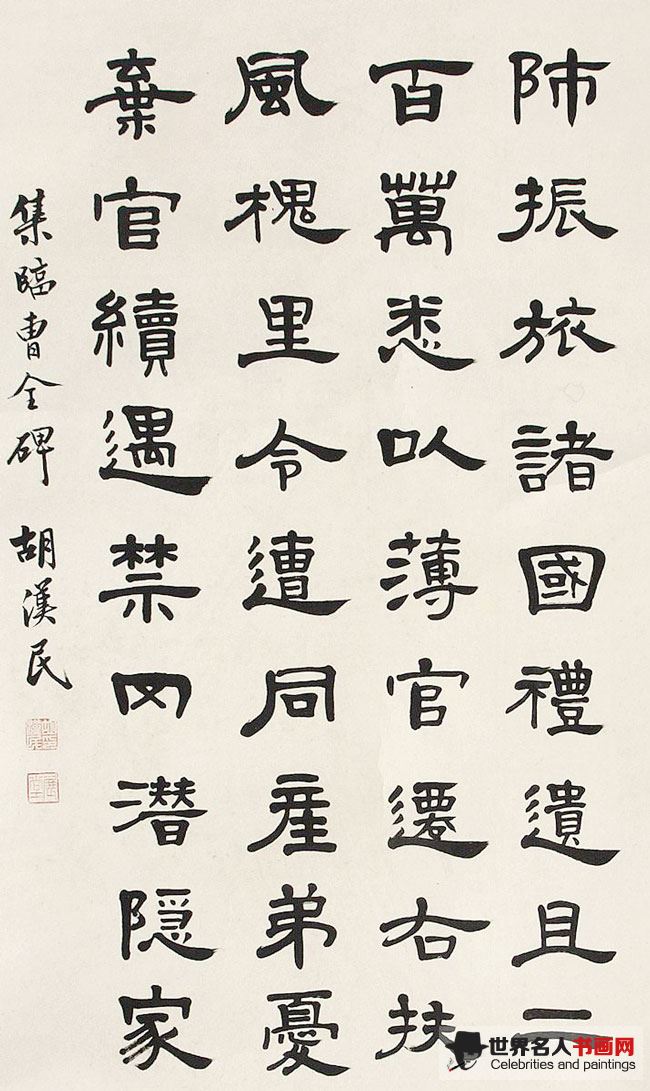 師振旅諸國禮遺且二
百萬悉以薄官遷右扶
風槐里令遭同産弟憂
棄官續遇禁网潜隐家
集臨曹全碑 胡漢民
世界名人书画网
Celebrities and paintings